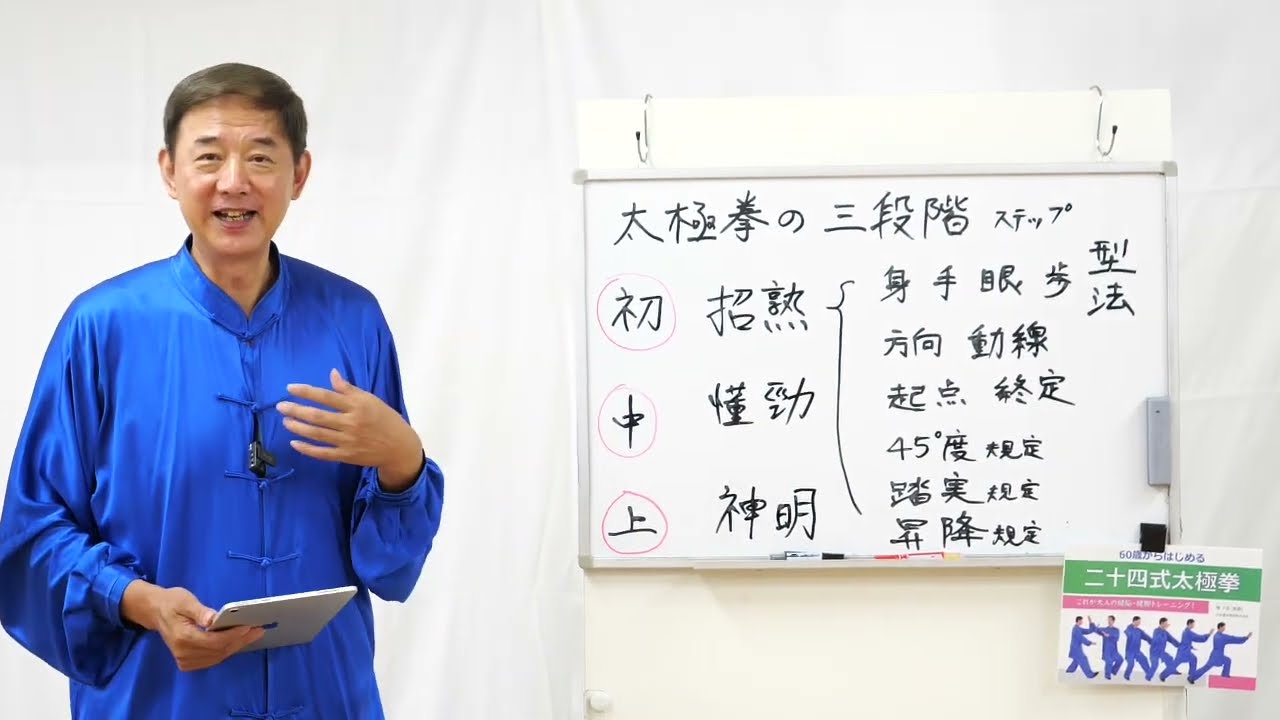 太極拳の三段階 ステップ
初 招熟 身手眼歩 型法
方向 動線
起点 終定
中 懂勁
45°度 規定
上 神明
踏実 規定
昇降 規定
60歳からはじめる
二十四式太極拳